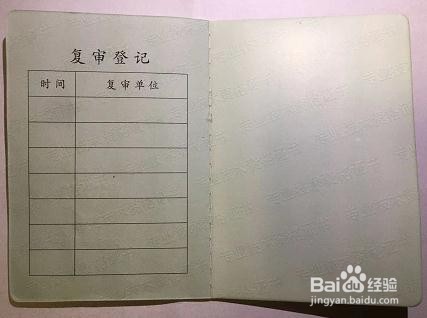 复审登记
时间 复审单位
Baidu经验
jingyan.baidu.com